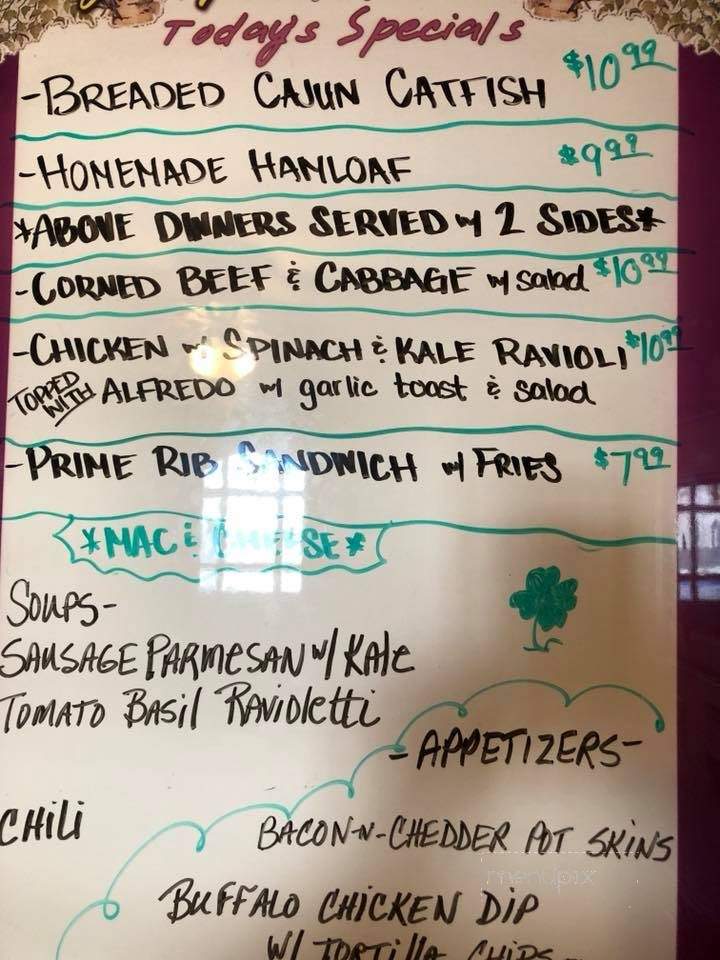 Today's Specials
-BREADED CAJUN CATFISH $10.99
-HOMEMADE HAMLOAF $9.99
*ABOVE DINNERS SERVED w/ 2 SIDES*
-CORNED BEEF & CABBAGE w/ salad $10.99
-CHICKEN w/ SPINACH & KALE RAVIOLI $10.99
TOPPED WITH ALFREDO w/ garlic toast & salad
-PRIME RIB SANDWICH w/ FRIES $7.99
*MAC & CHEESE*
SOUPS-
SAUSAGE PARMESAN w/ Kale
TOMATO BASIL Ravioletti
CHILI
-APPETIZERS-
BACON-N-CHEDDER POT SKINS
BUFFALO CHICKEN DIP
W/ TORTILLA CHIPS-
menupix